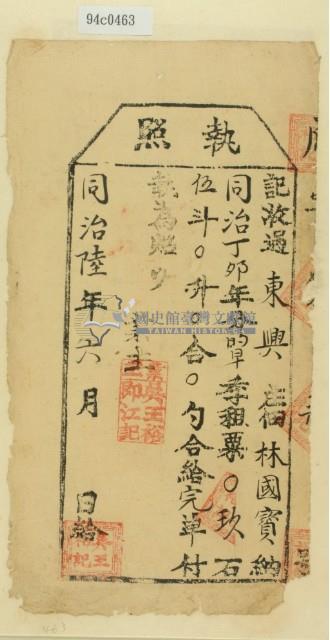 94c0463
執照
記收過東興庄佃林國寶納
同治丁卯年的早季租粟〇玖石
伍斗〇升〇合〇勺合給完单付
執為照
同治陸年六月 日給
國史館臺灣文獻館
TAIWAN HISTORICA